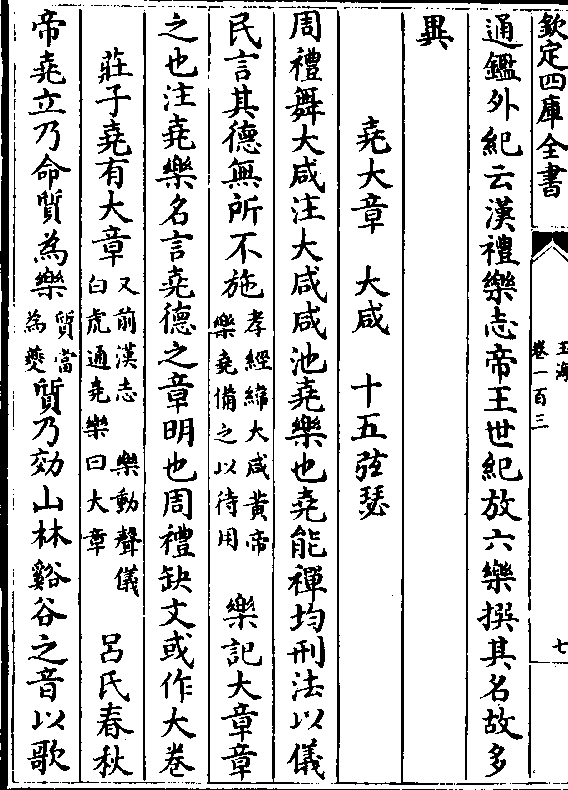 欽定四庫全書
玉海
卷一百三
七
通鑑外紀云漢禮樂志帝王世紀放六樂撰其名故多
異
堯大章　大咸　十五弦瑟
周禮舞大咸注大咸咸池堯樂也堯能禪均刑法以儀
民言其德無所不施孝經緯大咸黃帝樂堯備之以待用　樂記大章章
之也注堯樂名言堯德之章明也周禮缺文或作大卷
莊子堯有大章又前漢志　樂動聲儀白虎通堯樂曰大章　呂氏春秋
帝堯立乃命質為樂質當為夔質乃効山林谿谷之音以歌